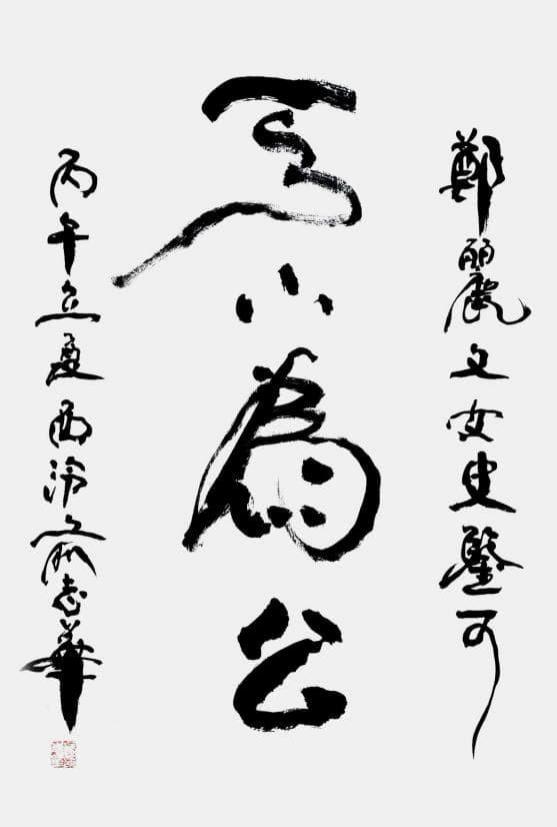 鄭麗文女史鑒可
天下為公
丙午立夏西泠俞志華